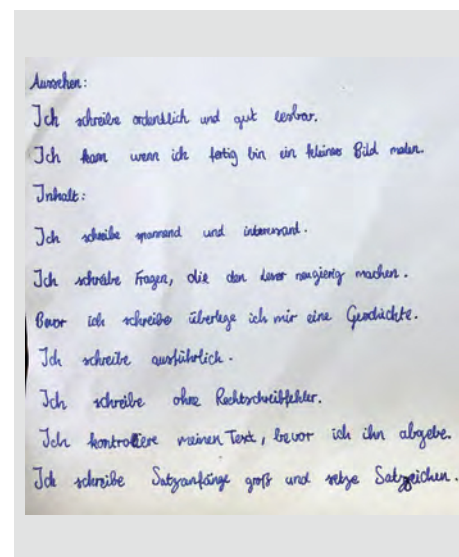 Aussehen:
Ich schreibe ordentlich und gut lesbar.
Ich kann wenn ich fertig bin ein kleines Bild malen.
Inhalt:
Ich schreibe spannend und interessand.
Ich schreibe Fragen, die den Leser neugierig machen.
Bevor ich schreibe überlege ich mir eine Geschichte.
Ich schreibe ausführlich.
Ich schreibe ohne Rechtschreibfehler.
Ich kontrolliere meinen Text, bevor ich ihn abgebe.
Ich schreibe Satzanfänge groß und setze Satzzeichen.